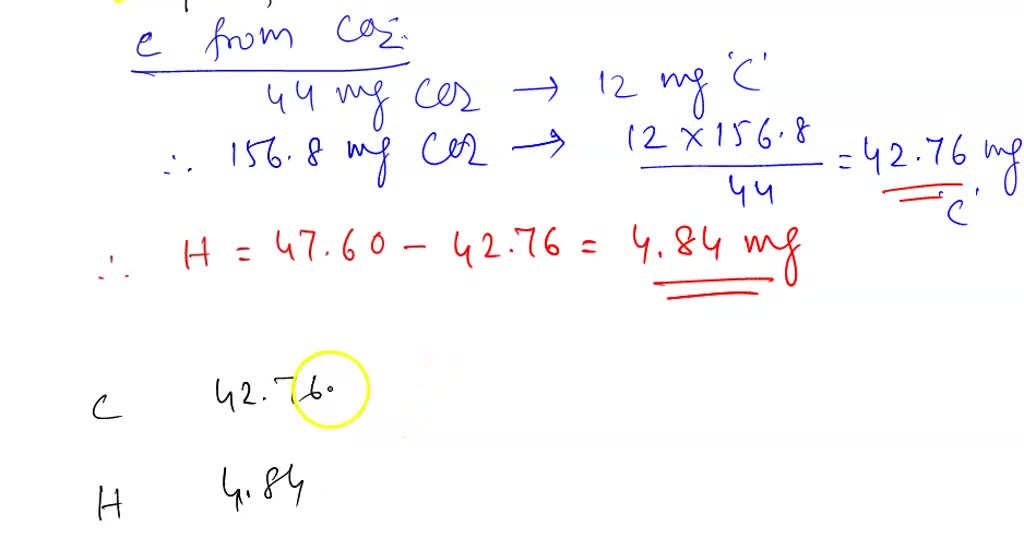 C from CO2.
44 mg CO2 → 12 mg 'C'
∴ 156.8 mg CO2 → 12 × 156.8 / 44 = 42.76 mg 'C'
∴ H = 47.60 - 42.76 = 4.84 mg
C 42.76
H 4.84